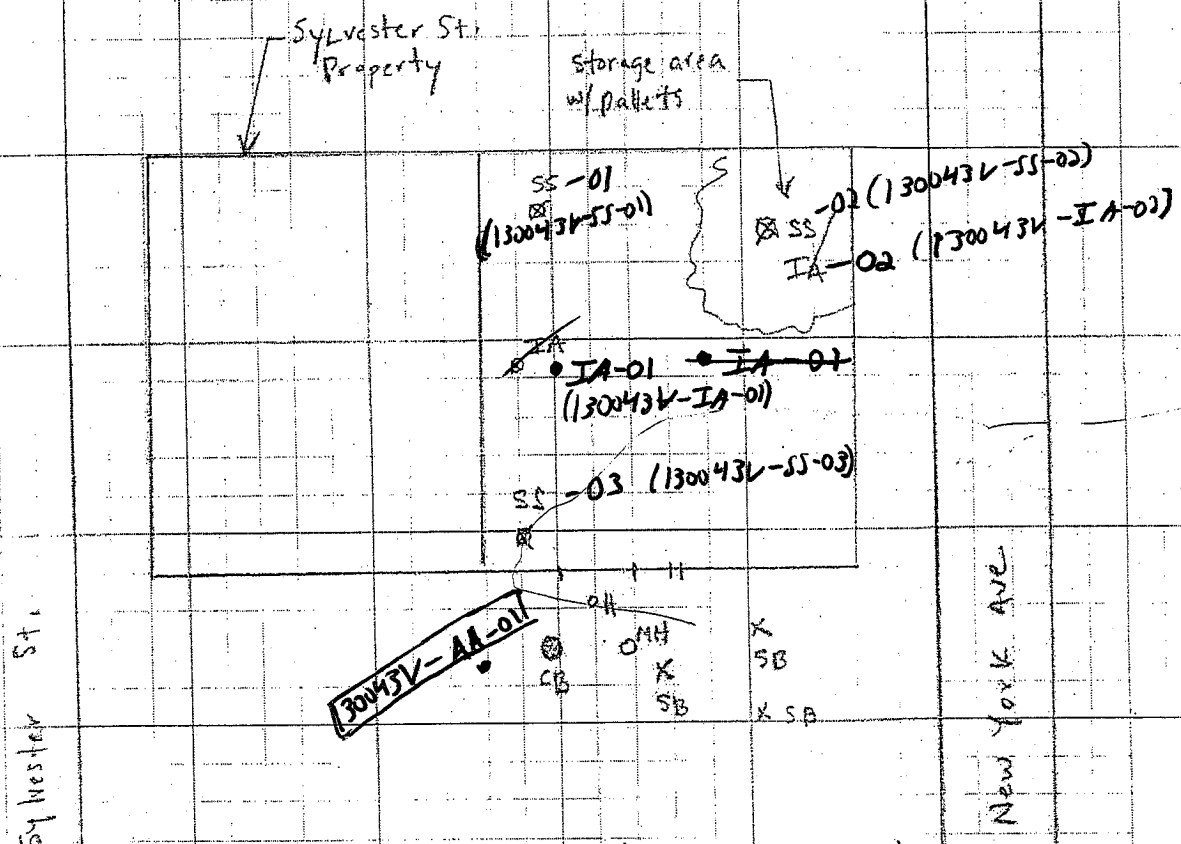 Sylvester St.
Property
Storage area
w/ pallets
SS-01
(130043V-SS-01)
SS-02 (130043V-SS-02)
IA-02 (130043V-IA-02)
IA
IA-01
(130043V-IA-01)
SS-03 (130043V-SS-03)
130043V-AA-01
CB
MH
SB
SB
SB
Sylvester St.
New York Ave